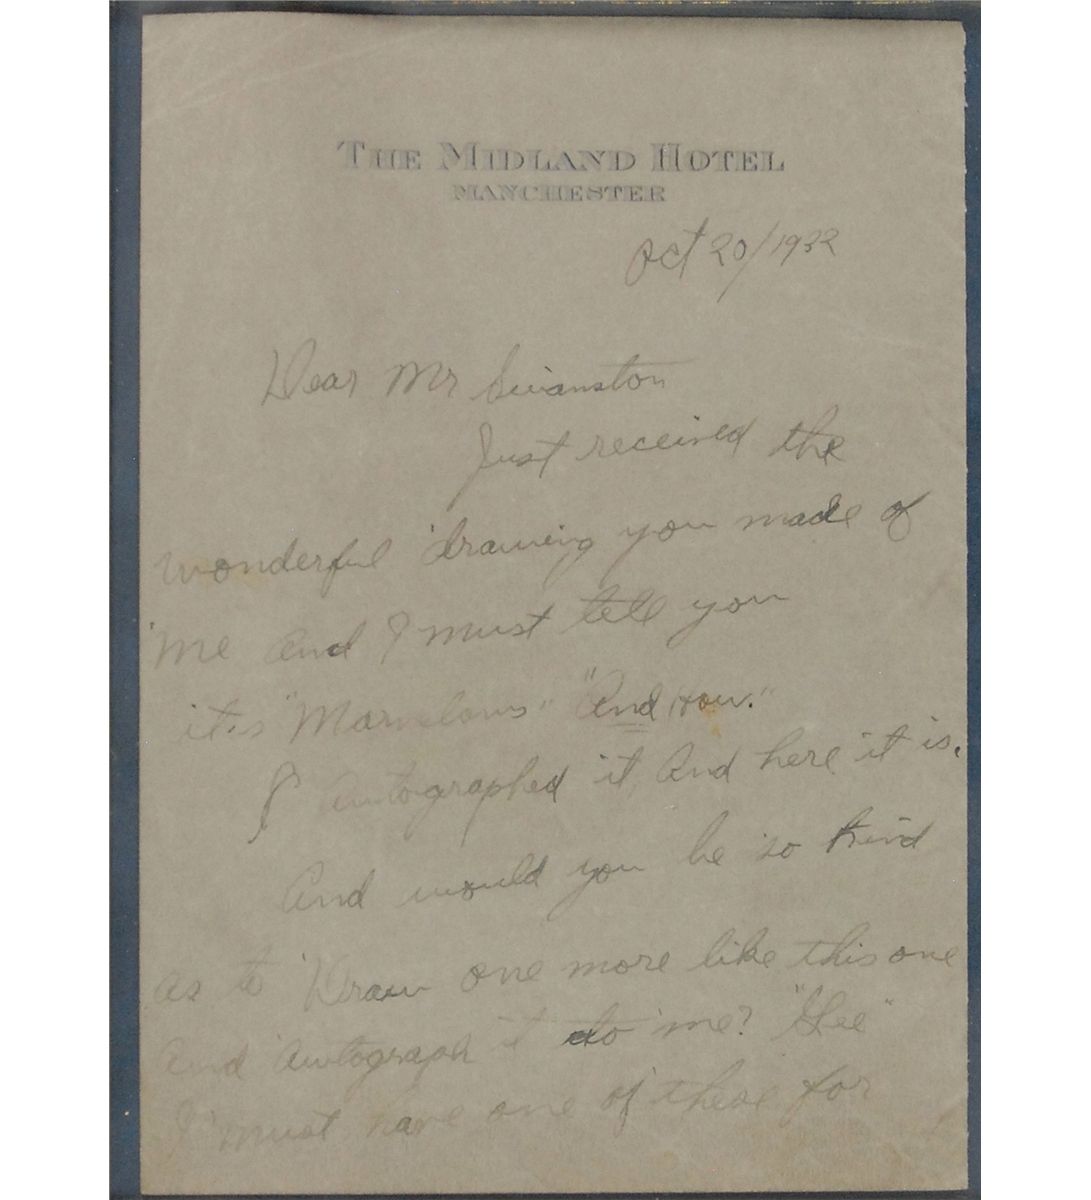 THE MIDLAND HOTEL
MANCHESTER
Oct 20/1932
Dear Mr Swanston
Just received the
wonderful drawing you made of
me and I must tell you
it's "Marvelous" "And How."
I Autographed it, And here it is.
And would you be so kind
as to Draw one more like this one
and autograph it to me? "Gee"
I must have one of these for